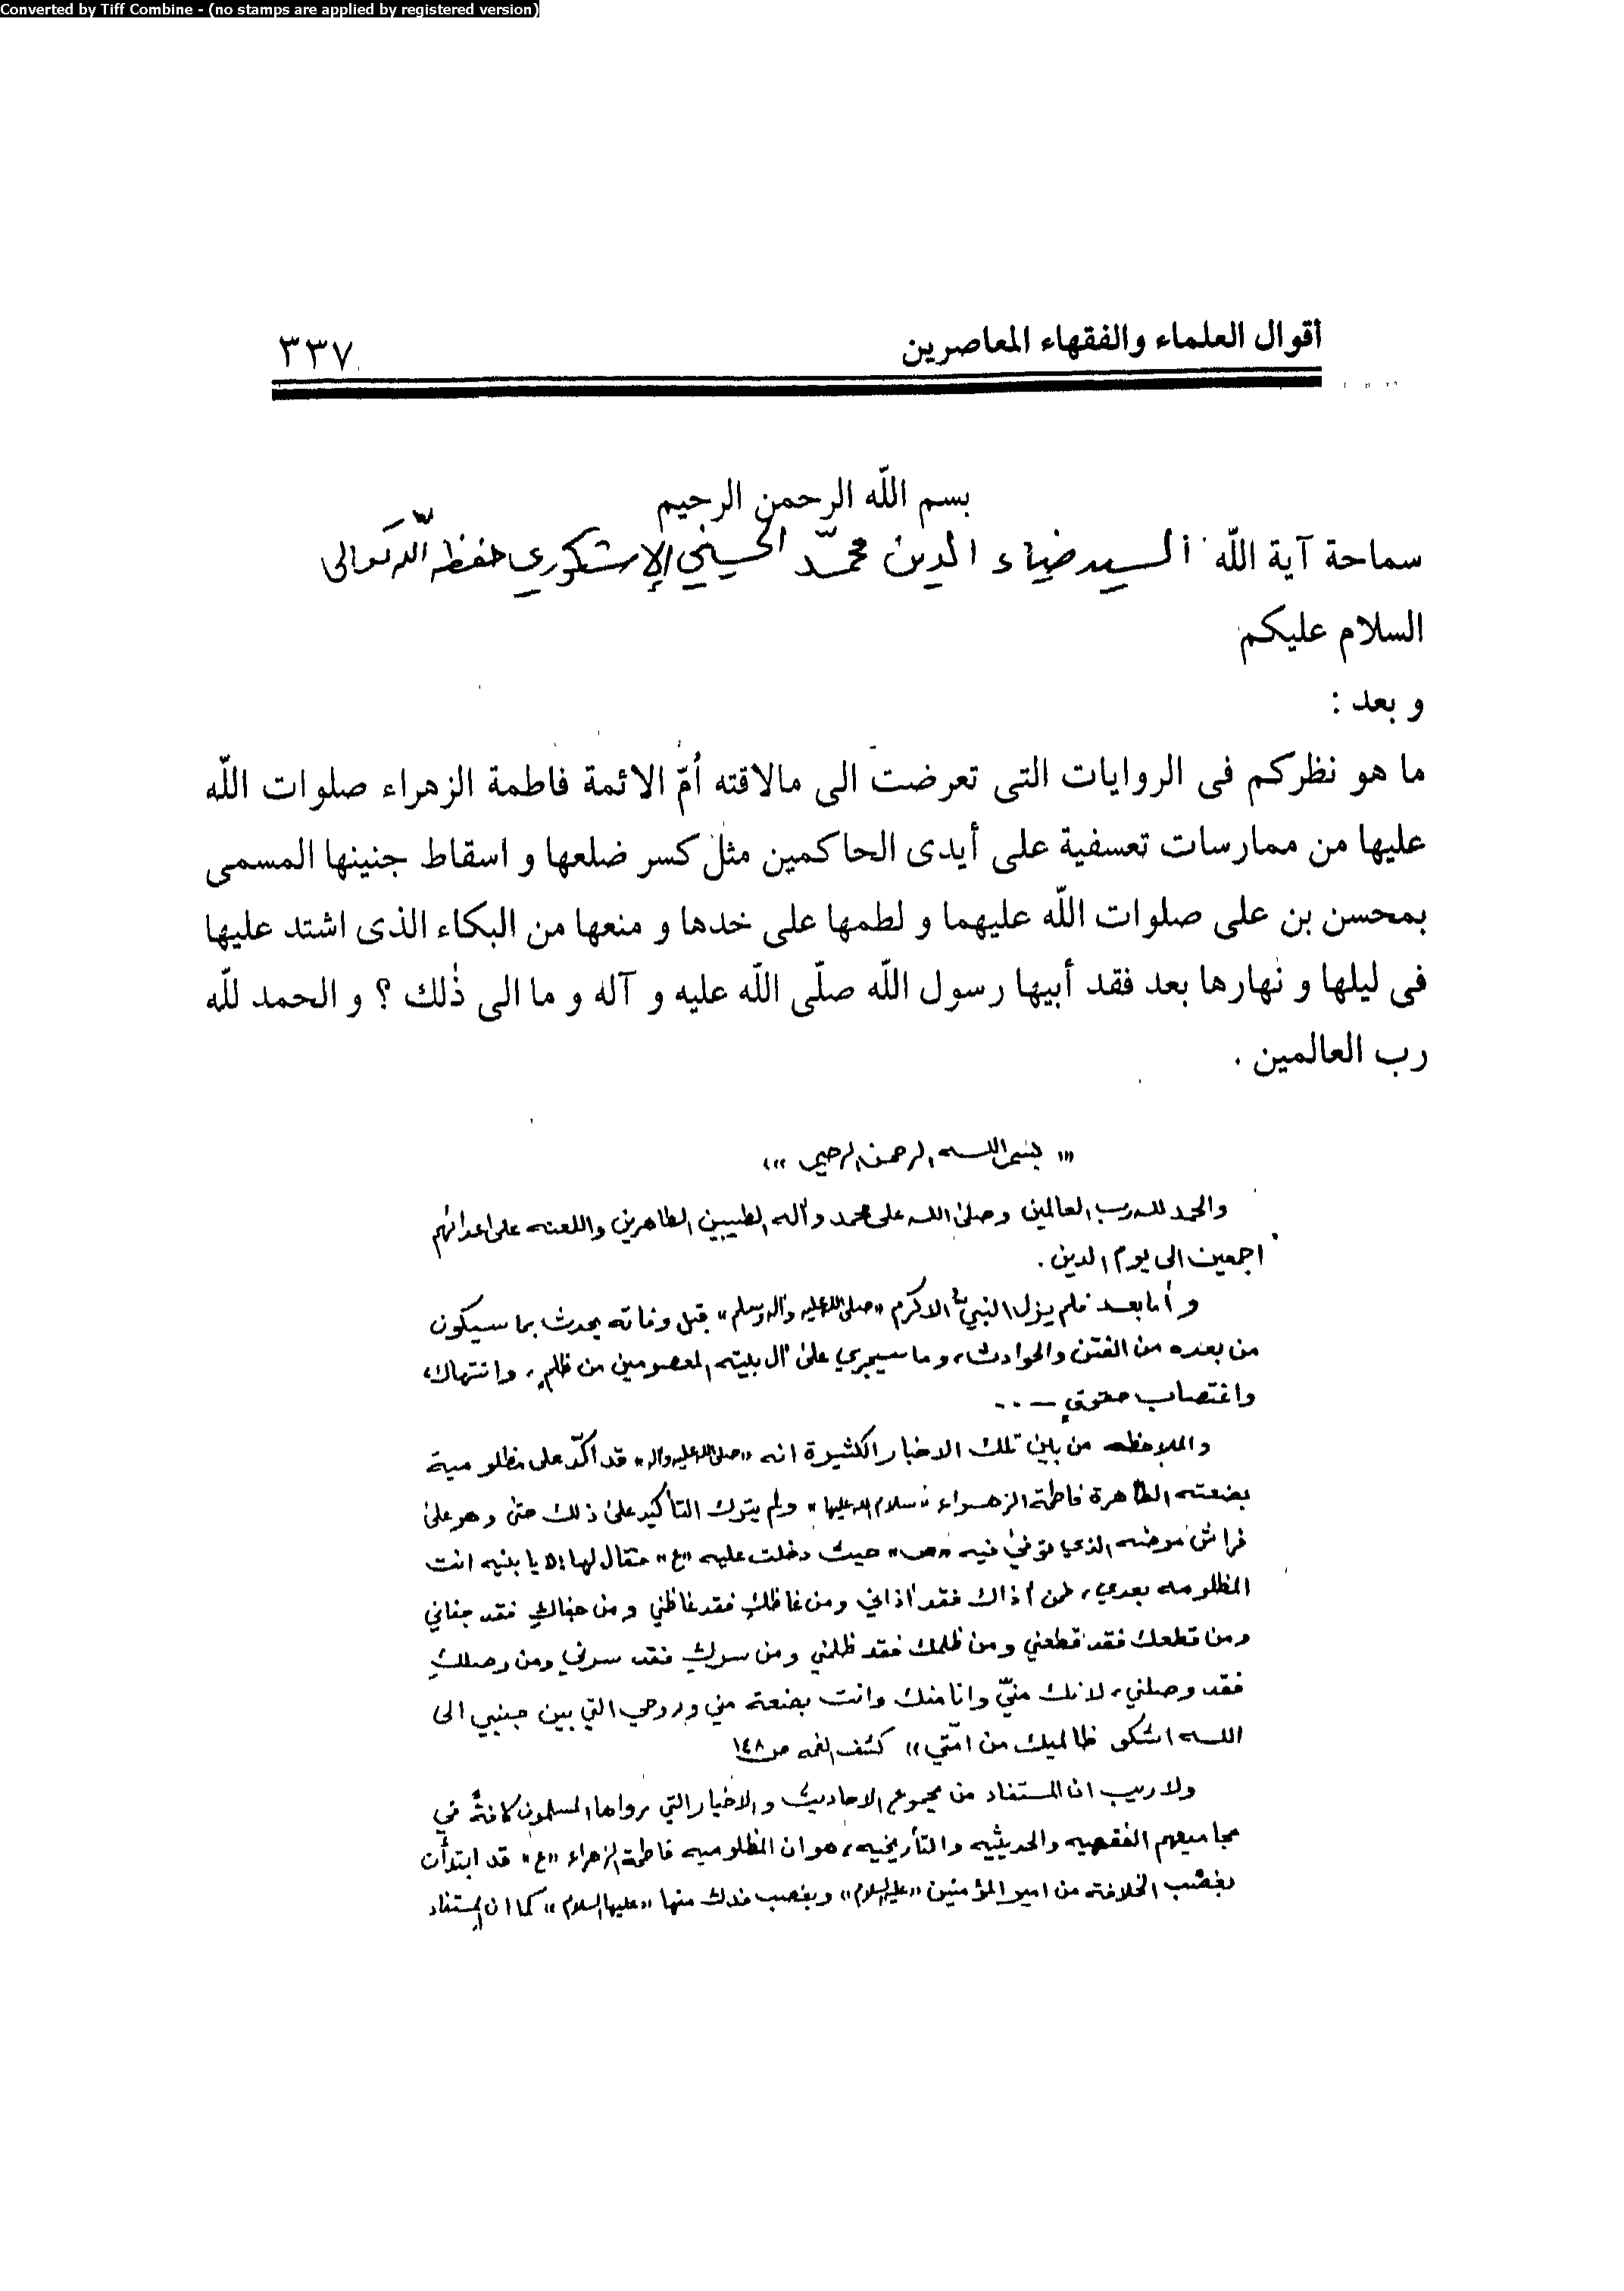 Converted by Tiff Combine - (no stamps are applied by registered version)
أقوال العلماء والفقهاء المعاصرين
٣٣٧
بسم اللّه الرحمن الرحيم
سماحة آية اللّه السيد ضياء الدين محمّد الحسيني الإشكوري حفظه اللّه تعالى
السلام عليكم
و بعد :
ما هو نظركم فى الروايات التى تعرضت الى مالاقته أمّ الائمة فاطمة الزهراء صلوات اللّه
عليها من ممارسات تعسفية على أيدى الحاكمين مثل كسر ضلعها و اسقاط جنينها المسمى
بمحسن بن على صلوات اللّه عليهما و لطمها على خدها و منعها من البكاء الذى اشتد عليها
فى ليلها و نهارها بعد فقد أبيها رسول اللّه صلّى اللّه عليه و آله و ما الى ذٰلك ؟ و الحمد للّه
رب العالمين .
«« بسم الله الرحمن الرحيم »»
والحمد لله رب العالمين وصلى الله على محمد وآله الطيبين الطاهرين واللعنه على اعدائهم
اجمعين الى يوم الدين .
وأما بعد فلم يزل النبي الاكرم «صلى الله عليه وآله وسلم» قبل وفاته يحدث بما سيكون
من بعده من الفتن والحوادث، وما سيجري على آل بيته المعصومين من ظلمٍ، وانتهاك،
واغتصاب حقوقٍ ...
والملاحظه من بين تلك الاخبار الكثيرة انه «صلى الله عليه وآله» قد أكّد على مظلومية
بضعته الطاهرة فاطمة الزهراء «سلام الله عليها» ولم يترك التأكيد على ذلك حتى وهو على
فراش مرضه الذي توفي فيه «ص» حيث دخلت عليه «ع» فقال لها: يا بنيه انت
المظلومه بعدي، فمن آذاك فقد آذاني ومن غاظك فقد غاظني ومن جفاك فقد جفاني
ومن قطعك فقد قطعني ومن ظلمك فقد ظلمني ومن سرك فقد سرني ومن وصلك
فقد وصلني، لانك منيّ وانا منك وانت بضعة مني وروحي التي بين جنبي الى
الله اشكو ظالميك من امّتي» كشف الغمه ص ١٤٨
ولاريب ان المستفاد من مجموع الاحاديث والاخبار التي رواها المسلمون كافةً في
مجاميعهم الفقهيه والحديثيه والتأريخيه، هو ان المظلوميه فاطمة الزهراء «ع» قد ابتدأت
بغصب الخلافة من امير المؤمنين «عليه السلام» وبغصب فدك منها «عليها السلام» كما ان المستفاد